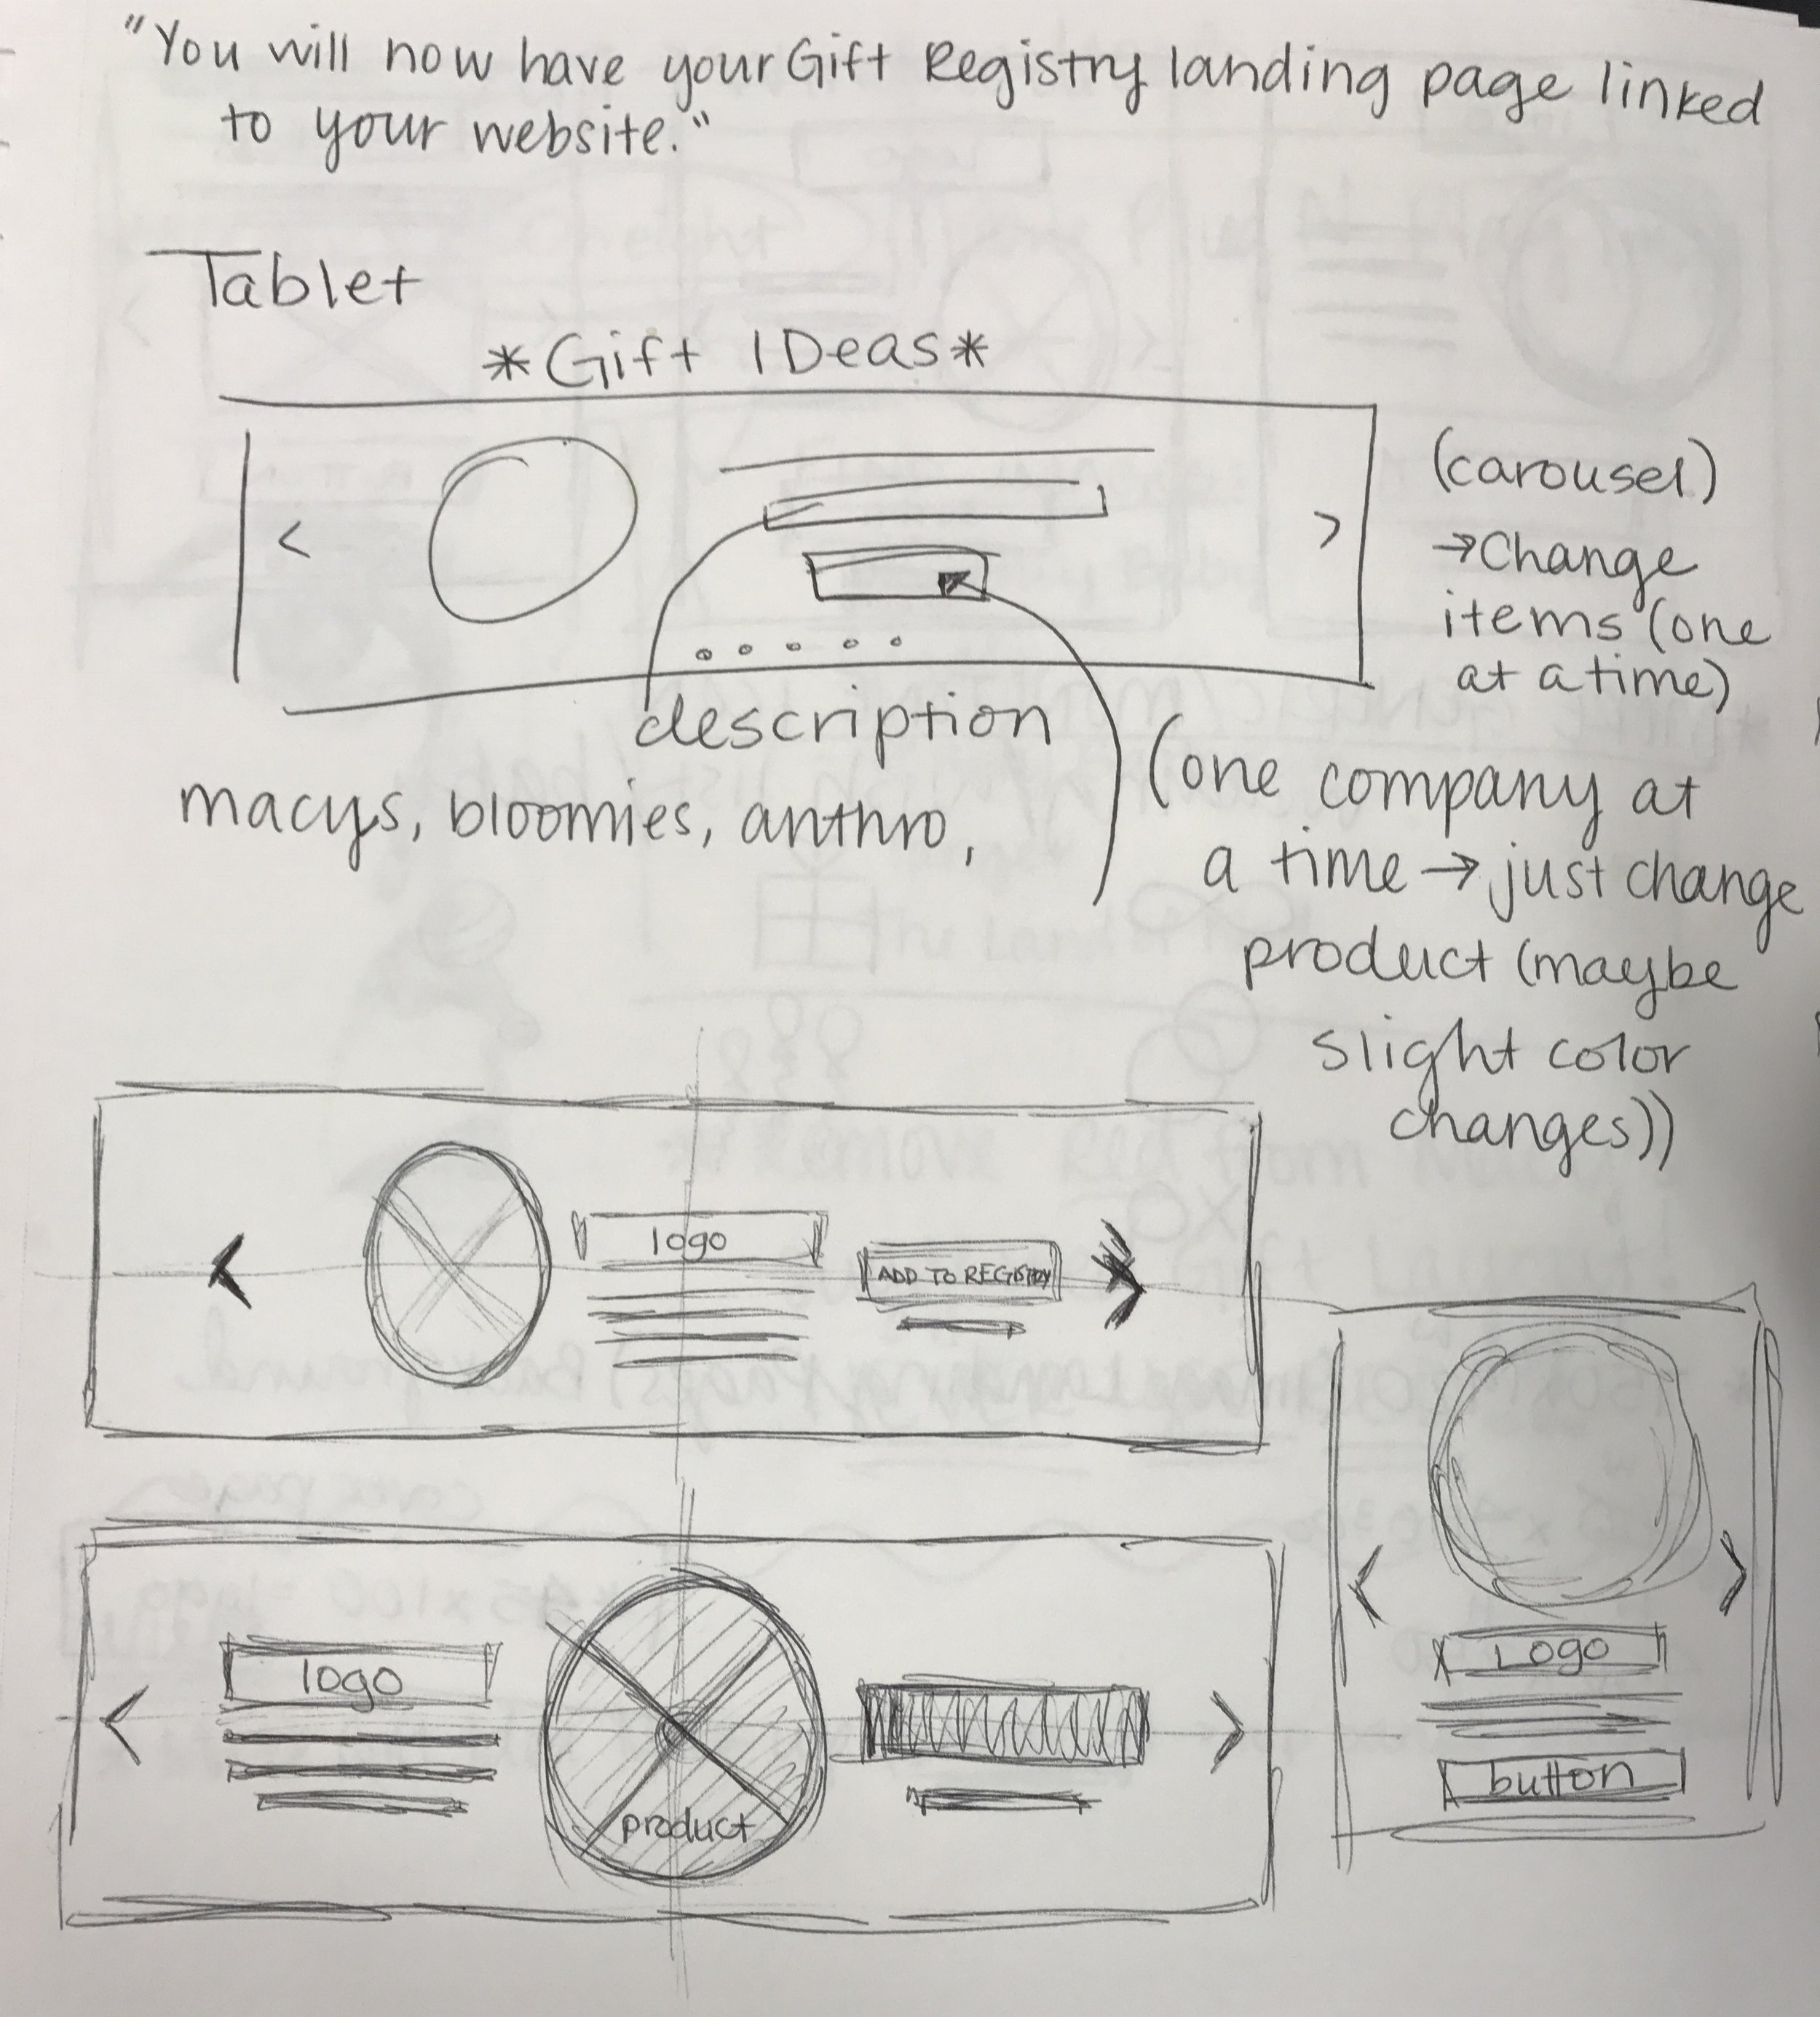 "You will now have your Gift Registry landing page linked
to your website."
Tablet
*Gift IDeas*
(carousel)
→Change
items (one
at a time)
description
macys, bloomies, anthro,
(one company at
a time → just change
product (maybe
slight color
changes))
logo
ADD TO REGISTRY
logo
product
Logo
button